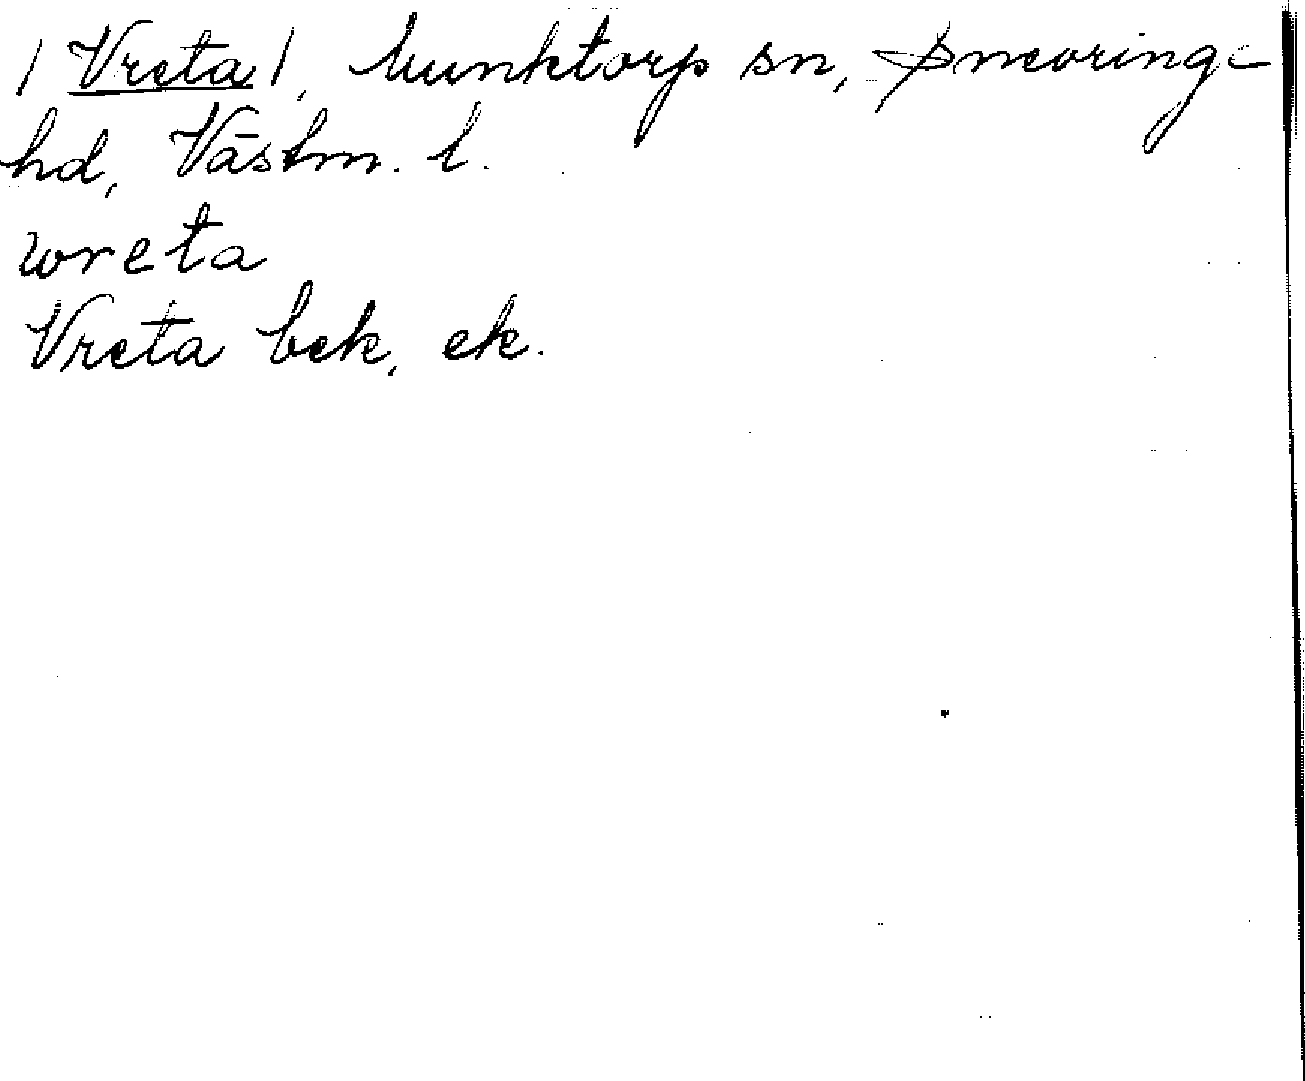 / Vreta /, Munktorp sn, Snevringe
hd, Västm. l.
wreta
Vreta bek, ek.